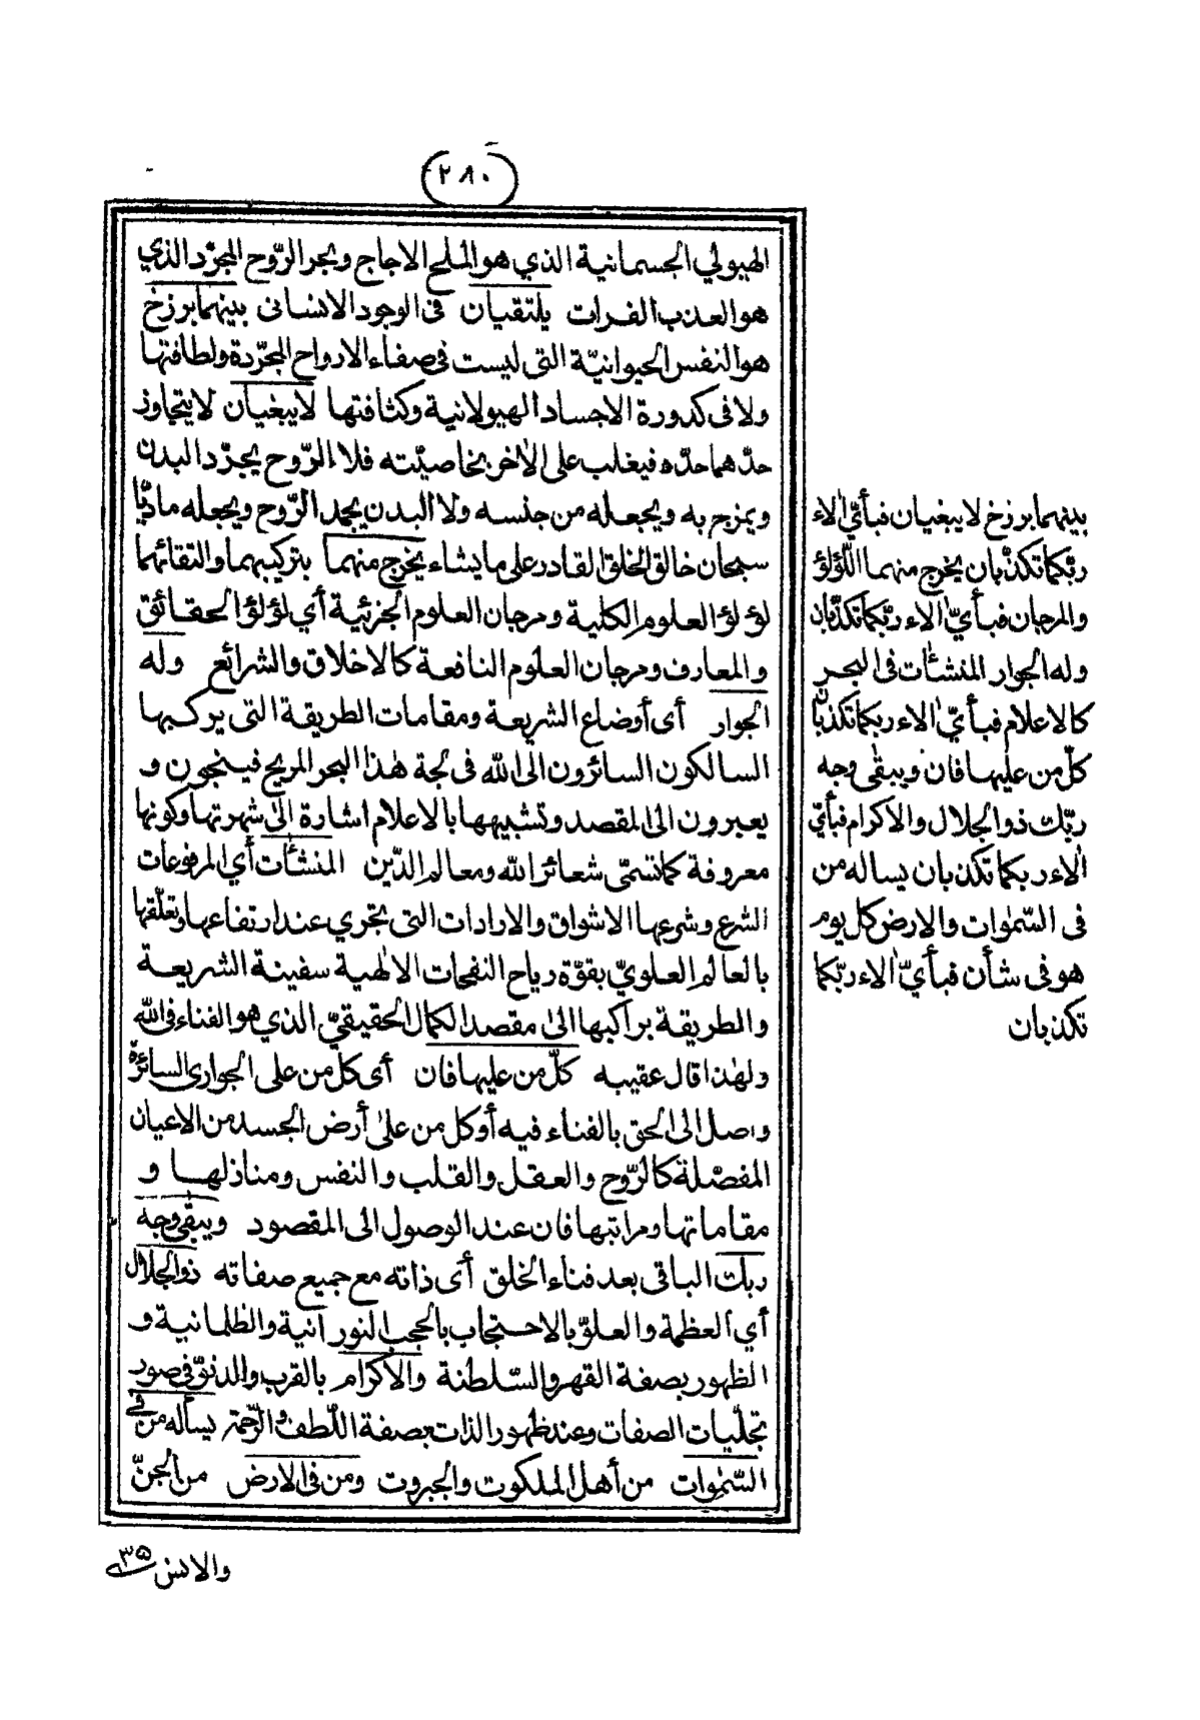 ٢٨٠
الهيولي الجسمانية الذي هو الملح الاجاج وبحر الرّوح المجرّد الذي
هو العذب الفرات يلتقيان فى الوجود الانسانى بينهما برزخ
هو النفس الحيوانيّة التى ليست فى صفاء الارواح المجرّدة ولطافتها
ولا فى كدورة الاجساد الهيولانية وكثافتها لا يبغيان لا يتجاوز
حدّهما حدّه فيغلب على الاٰخر بخاصيّته فلا الرّوح يجرّد البدن
ويمزج به ويجعله من جنسه ولا البدن يجمد الرّوح ويجعله مادّيّا
سبحان خالق الخلق القادر على ما يشاء يخرج منهما بتركيبهما والتقائهما
لؤلؤ العلوم الكلية ومرجان العلوم الجزئية أي لؤلؤ الحقائق
والمعارف ومرجان العلوم النافعة كالاخلاق والشرائع وله
الجوار أى أوضاع الشريعة ومقامات الطريقة التى يركبها
السالكون السائرون الى الله فى لجة هٰذا البحر المريج فينجون و
يعبرون الى المقصد وتشبيهها بالاعلام اشارة الىٰ شهرتها وكونها
معروفة كما تسمّى شعائر الله ومعالم الدّين المنشئٰات أي المرفوعات
الشرع وشرعها الاشواق والارادات التى تجري عند ارتفاعها وتعلّقها
بالعالم العلويّ بقوّة رياح النفحات الالٰهية سفينة الشريعة
والطريقة براكبها الىٰ مقصد الكمال الحقيقيّ الذي هو الفناء فى اللّه
ولهٰذا قال عقيبه كلّ من عليها فان أى كلّ من على الجوارى السائرة
واصل الى الحق بالفناء فيه أو كل من علىٰ أرض الجسد من الاعيان
المفصّلة كالرّوح والعقل والقلب والنفس ومنازلها و
مقاماتها ومراتبها فان عند الوصول الى المقصود ويبقى وجه
ربك الباقى بعد فناء الخلق أى ذاته مع جميع صفاته ذو الجلال
أي العظمة والعلوّ بالاحتجاب بالحجب النورانية والظلمانية و
الظهور بصفة القهر والسّلطنة والاكرام بالقرب والدنوّ فى صور
تجلّيات الصفات وعند ظهور الذات بصفة اللّطف والرّحمة يسأله من فى
السّمٰوات من أهل الملكوت والجبروت ومن فى الارض من الجنّ
والانس
بينهما برزخ لا يبغيان فبأيّ اٰلاء
ربّكما تكذّبان يخرج منهما اللّؤلؤ
والمرجان فبأيّ اٰلاء ربّكما تكذّبان
وله الجوار المنشئٰات فى البحر
كالاعلام فبأيّ اٰلاء ربكما تكذبان
كلّ من عليها فان ويبقٰى وجه
ربّك ذو الجلال والاكرام فبأيّ
اٰلاء ربكما تكذبان يساله من
فى السّمٰوات والارض كل يوم
هو فى شأن فبأيّ اٰلاء ربّكما
تكذبان